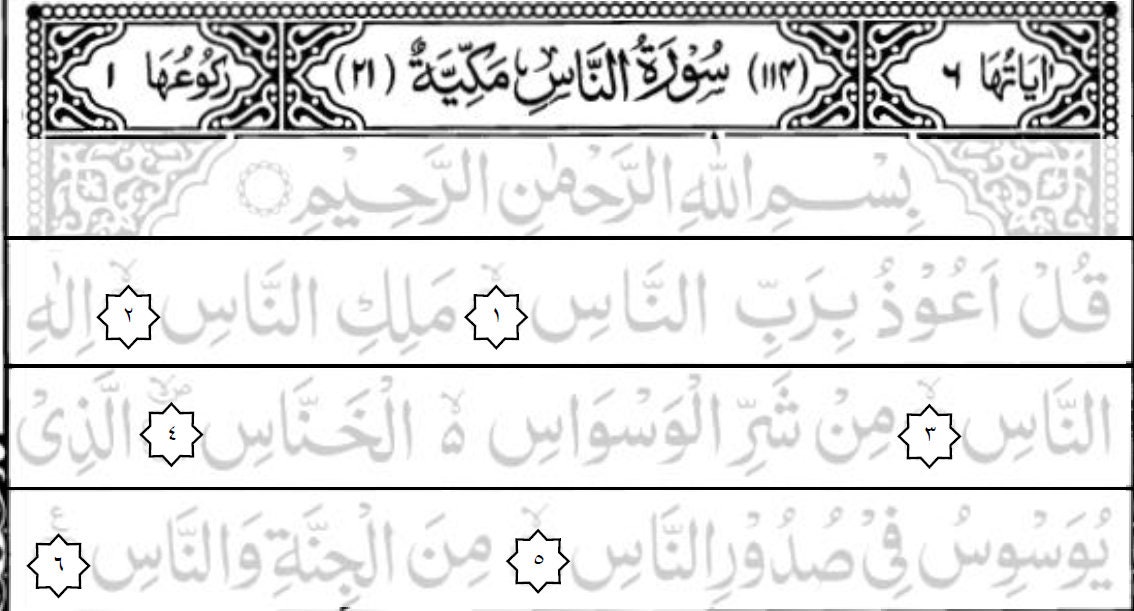 اٰيَاتُهَا ٦ (١١٤) سُوْرَةُ النَّاسِ مَكِّيَّةٌ (٢١) رُكُوْعُهَا ١
بِسْمِ اللّٰهِ الرَّحْمٰنِ الرَّحِيْمِ
قُلْ اَعُوْذُ بِرَبِّ النَّاسِ ۙ ١ مَلِكِ النَّاسِ ۙ ٢ اِلٰهِ
النَّاسِ ۙ ٣ مِنْ شَرِّ الْوَسْوَاسِ ۙ۵ الْخَنَّاسِ ۪ۙ ٤ الَّذِيْ
يُوَسْوِسُ فِيْ صُدُوْرِ النَّاسِ ۙ ٥ مِنَ الْجِنَّةِ وَالنَّاسِ ع ٦